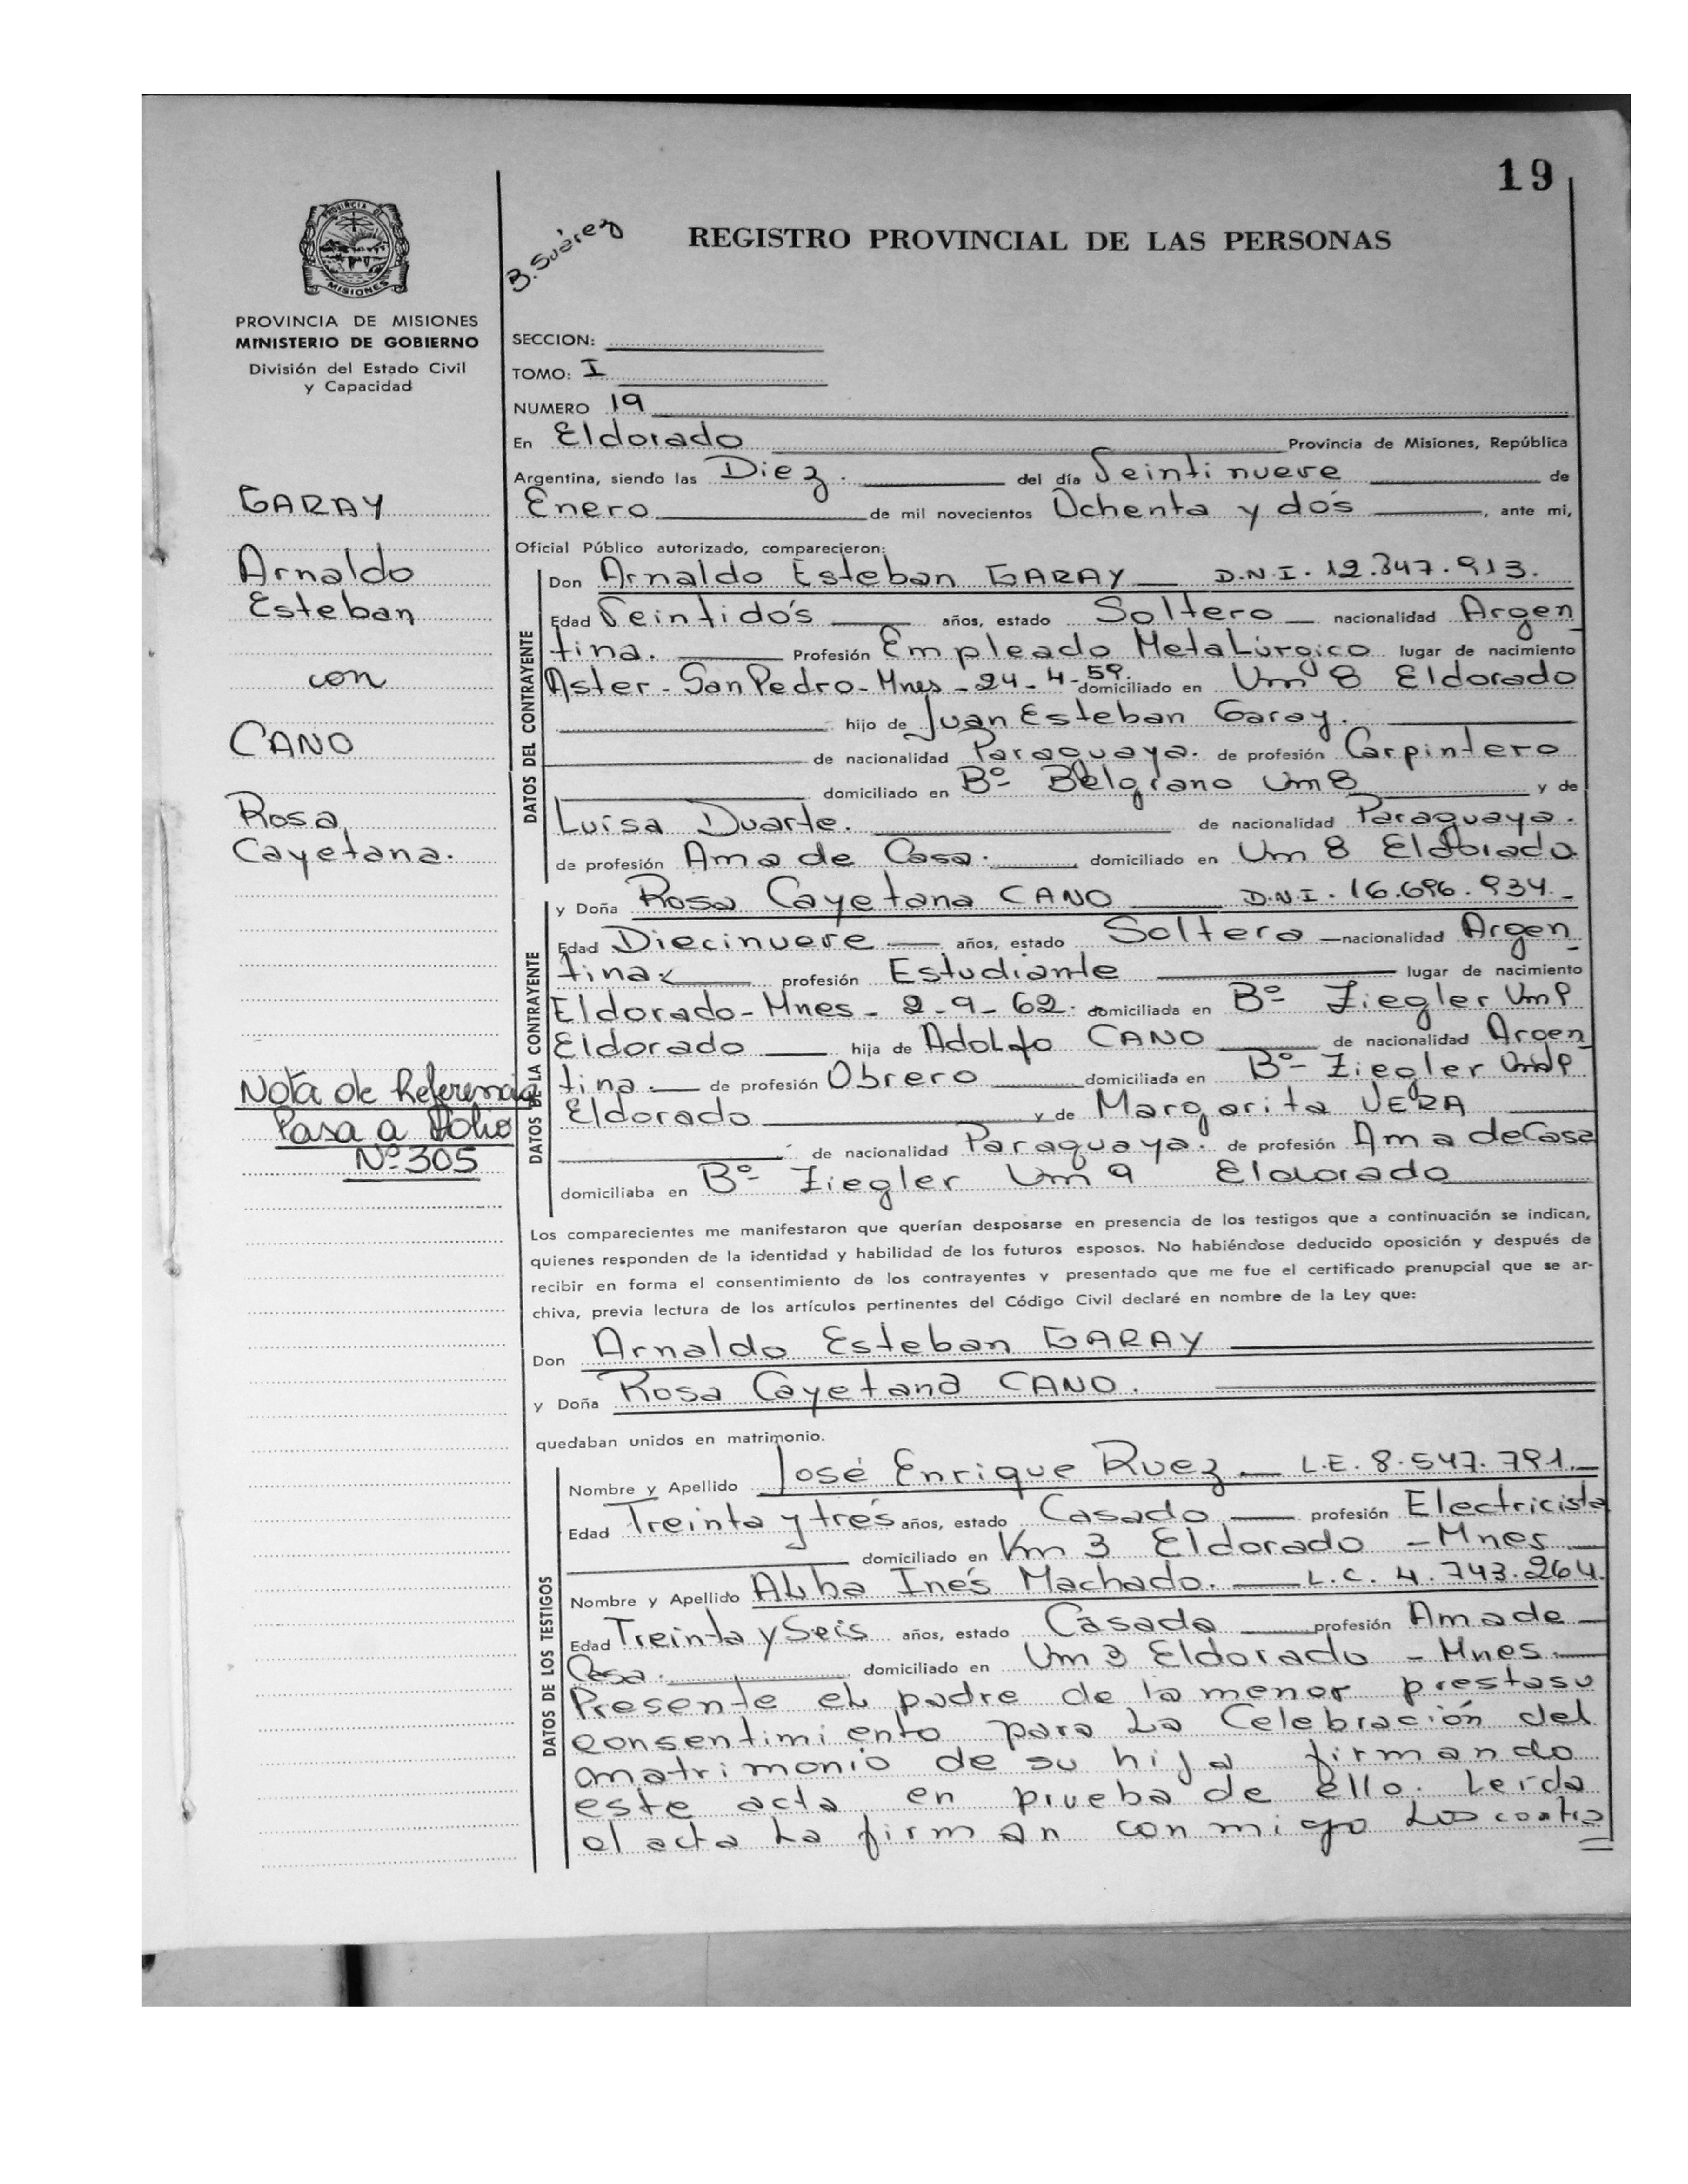 19
B. Suárez
REGISTRO PROVINCIAL DE LAS PERSONAS
PROVINCIA DE
MISIONES
PROVINCIA DE MISIONES
MINISTERIO DE GOBIERNO
División del Estado Civil
y Capacidad
GARAY
Arnaldo
Esteban
con
CANO
Rosa
Cayetana.
Nota de Referencia
Pasa a Folio
Nº 305
SECCION:
TOMO: I
NUMERO 19
En Eldorado Provincia de Misiones, República
Argentina, siendo las Diez. del día Veintinueve de
Enero de mil novecientos Ochenta y dos, ante mi,
Oficial Público autorizado, comparecieron:
DATOS DEL CONTRAYENTE
Don Arnaldo Esteban GARAY D.N.I. 12.347.913.
Edad Veintidós años, estado Soltero nacionalidad Argen
tina. Profesión Empleado Metalúrgico lugar de nacimiento
Aster - San Pedro - Mnes - 24-4-59. domiciliado en Km 8 Eldorado
hijo de Juan Esteban Garay.
de nacionalidad Paraguaya. de profesión Carpintero
domiciliado en Bº Belgrano Km 8 y de
Luisa Duarte. de nacionalidad Paraguaya.
de profesión Ama de Casa. domiciliado en Km 8 Eldorado
DATOS DE LA CONTRAYENTE
y Doña Rosa Cayetana CANO D.N.I. 16.696.934.-
Edad Diecinueve años, estado Soltera nacionalidad Argen
tina. profesión Estudiante lugar de nacimiento
Eldorado - Mnes - 2-9-62. domiciliada en Bº Ziegler Km 9
Eldorado hija de Adolfo CANO de nacionalidad Argen
tina. de profesión Obrero domiciliada en Bº Ziegler Km 9
Eldorado y de Margarita VERA
de nacionalidad Paraguaya. de profesión Ama de Casa
domiciliaba en Bº Ziegler Km 9 Eldorado
Los comparecientes me manifestaron que querían desposarse en presencia de los testigos que a continuación se indican,
quienes responden de la identidad y habilidad de los futuros esposos. No habiéndose deducido oposición y después de
recibir en forma el consentimiento de los contrayentes y presentado que me fue el certificado prenupcial que se ar-
chiva, previa lectura de los artículos pertinentes del Código Civil declaré en nombre de la Ley que:
Don Arnaldo Esteban GARAY
y Doña Rosa Cayetana CANO.
quedaban unidos en matrimonio.
DATOS DE LOS TESTIGOS
Nombre y Apellido José Enrique Ruez L.E. 8.547.791.
Edad Treinta y tres años, estado Casado profesión Electricista
domiciliado en Km 3 Eldorado - Mnes
Nombre y Apellido Alba Inés Machado. L.C. 4.743.264.
Edad Treinta y Seis años, estado Casada profesión Ama de
Casa. domiciliado en Km 3 Eldorado - Mnes.
Presente el padre de la menor presta su
consentimiento para la Celebración del
matrimonio de su hija firmando
este acta en prueba de ello. Leída
el acta la firman conmigo los contra